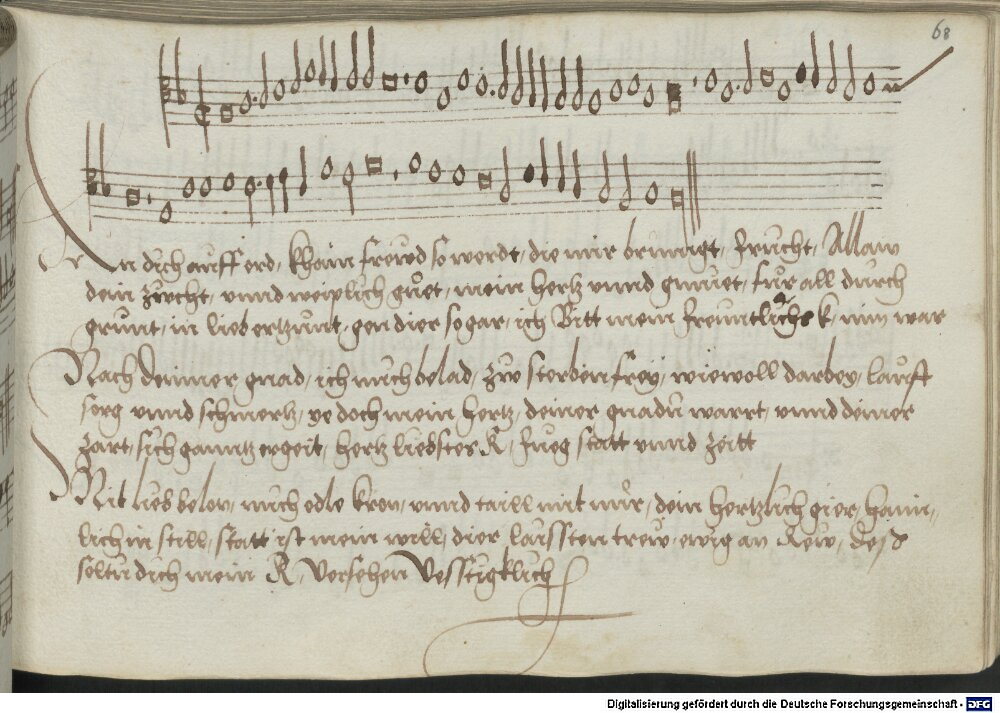 68
An dich auff erd, khain frewd so werdt, die mir bringet frucht, Allain
dein zücht, vnnd weiplich güet, mein hertz vnnd gmüet, für all durch
grunt, in lieb ertzünt, gen dier so gar, ich Bitt mein freuntlichs k, nim war
Nach deinner gnad, ich mich belad, zw sterben frey, wiewoll darbey, laufft
sorg vnnd schmertz, ye doch mein hertz, deiner gnadn wartt, vnnd deiner
zart, sich ganntz ergeit, hertz liebster K, fueg statt vnnd zeitt
Mit lieb belon, mich edle kron, vnnd taill mit mir, dein hertzlich gier, haim,
lich in still, statt ist mein will, dier laissten trew, ewig an Rew, deß
soltu dich mein K, versehen Vesstigklich
Digitalisierung gefördert durch die Deutsche Forschungsgemeinschaft - DFG